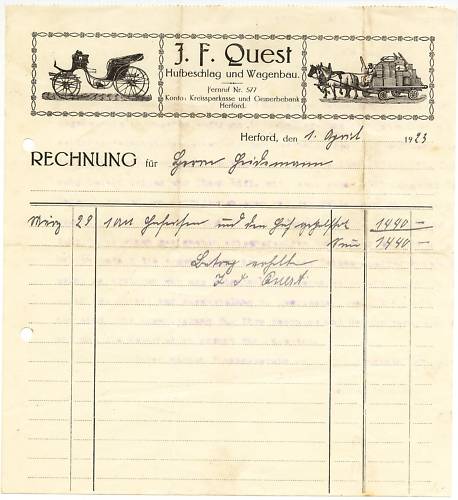 J. F. Quest
Hufbeschlag und Wagenbau.
Fernruf Nr. 577
Konto: Kreissparkasse und Gewerbebank
Herford.
Herford, den 1. April 1923
RECHNUNG für Herrn Heidemann
März 29 1 und den Huf 1440 —
1440 —
Betrag erhalten
J. F. Quest